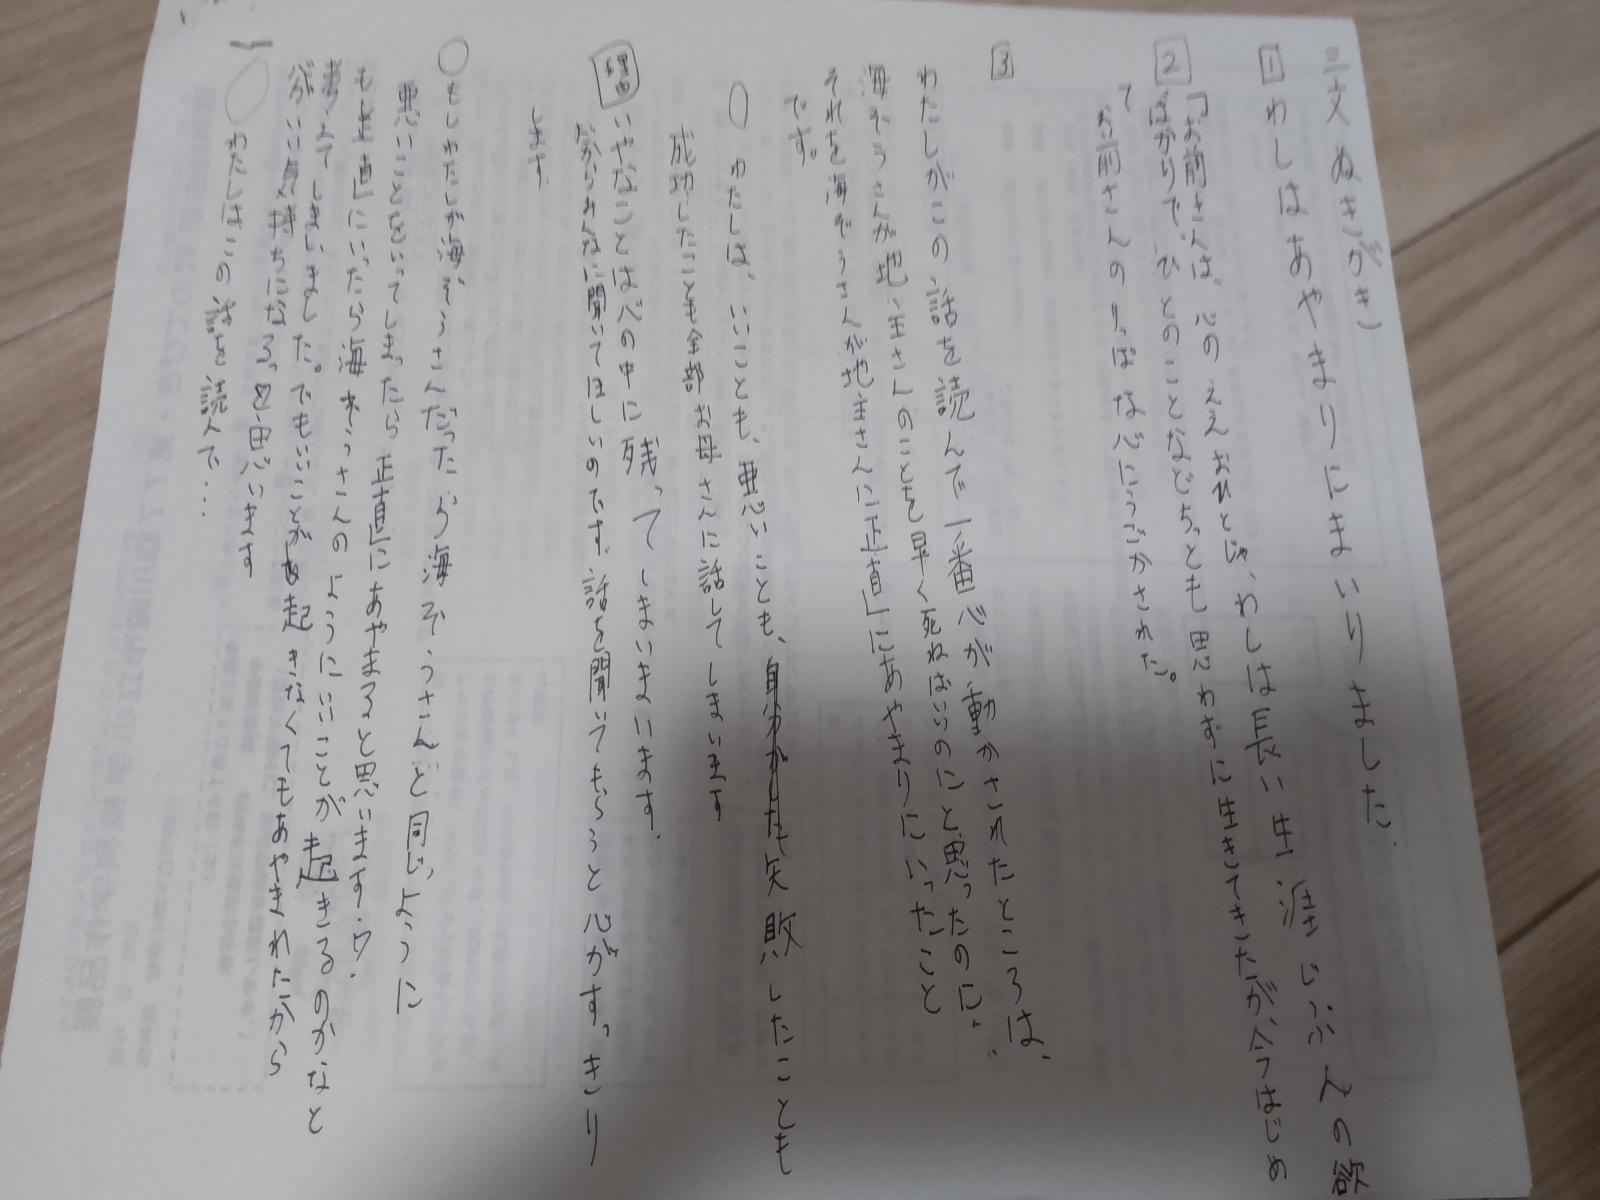 三文ぬきがき
1 わしはあやまりにまいりました.
2 「お前さんは、心のええおひとじゃ、わしは長い生涯じぶんの欲
ばかりで、ひとのことなどちっとも思わずに生きてきたが、今はじめ
て お前さんのりっぱな心にうごかされた。
3
わたしがこの話を読んで一番心が動かされたところは、
海ぞうさんが地主さんのことを早く死ねばいいのにと思ったのに、
それを海ぞうさんが地主さんに正直にあやまりにいったこと
です。
○ わたしは、いいことも、悪いことも、自分がした失敗したことも
成功したことも全部お母さんに話してしまいます
理由 いやなことは心の中に残ってしまいまいます.
だからみんなに聞いてほしいのです. 話を聞いてもらうと心がすっきり
します.
○もしわたしが海ぞうさんだったら海ぞうさんと同じように
悪いことをいってしまったら正直にあやまると思います.
も正直にいったら海ぞうさんのようにいいことが起きるのかなと
考えてしまいました。でもいいことが起きなくてもあやまれたから
がいい気持ちになると思います
○ わたしはこの話を読んで…